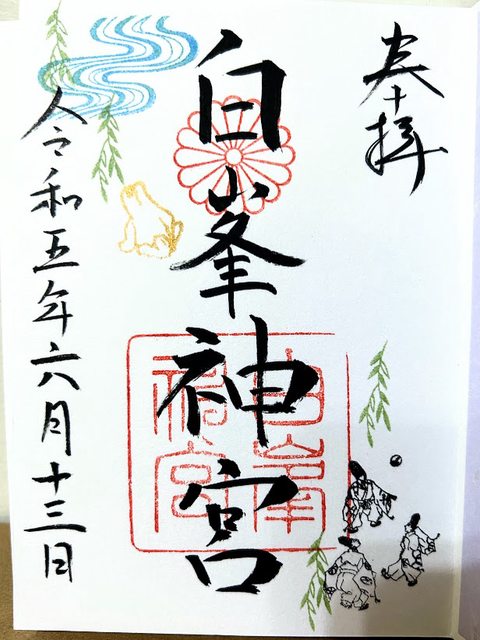 奉拝
白峯神宮
白峯神宮
令和五年六月十三日